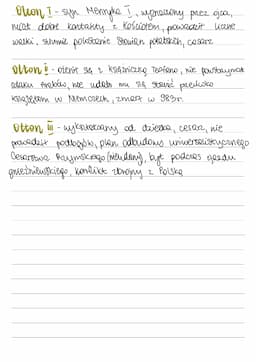 Otton I - syn Henryka I, wyznaczony przez ojca,
miał dobre kontakty z Kościołem, prowadził liczne
walki, stłumił Słowian połabskich, cesarz
Otton II - ożenił się z księżniczką Teofano, nie powstrzymał
ataku Arabów, nie udało mu się stanąć przeciwko
książętom w Niemczech, zmarł w 983r.
Otton III - wykształcony od dziecka, cesarz, nie
prowadził podbojów, plan odbudowy uniwersalistycznego
Cesarstwa Rzymskiego (nieudany), był podczas zjazdu
gnieźnieńskiego, konflikt zbrojny z Polską